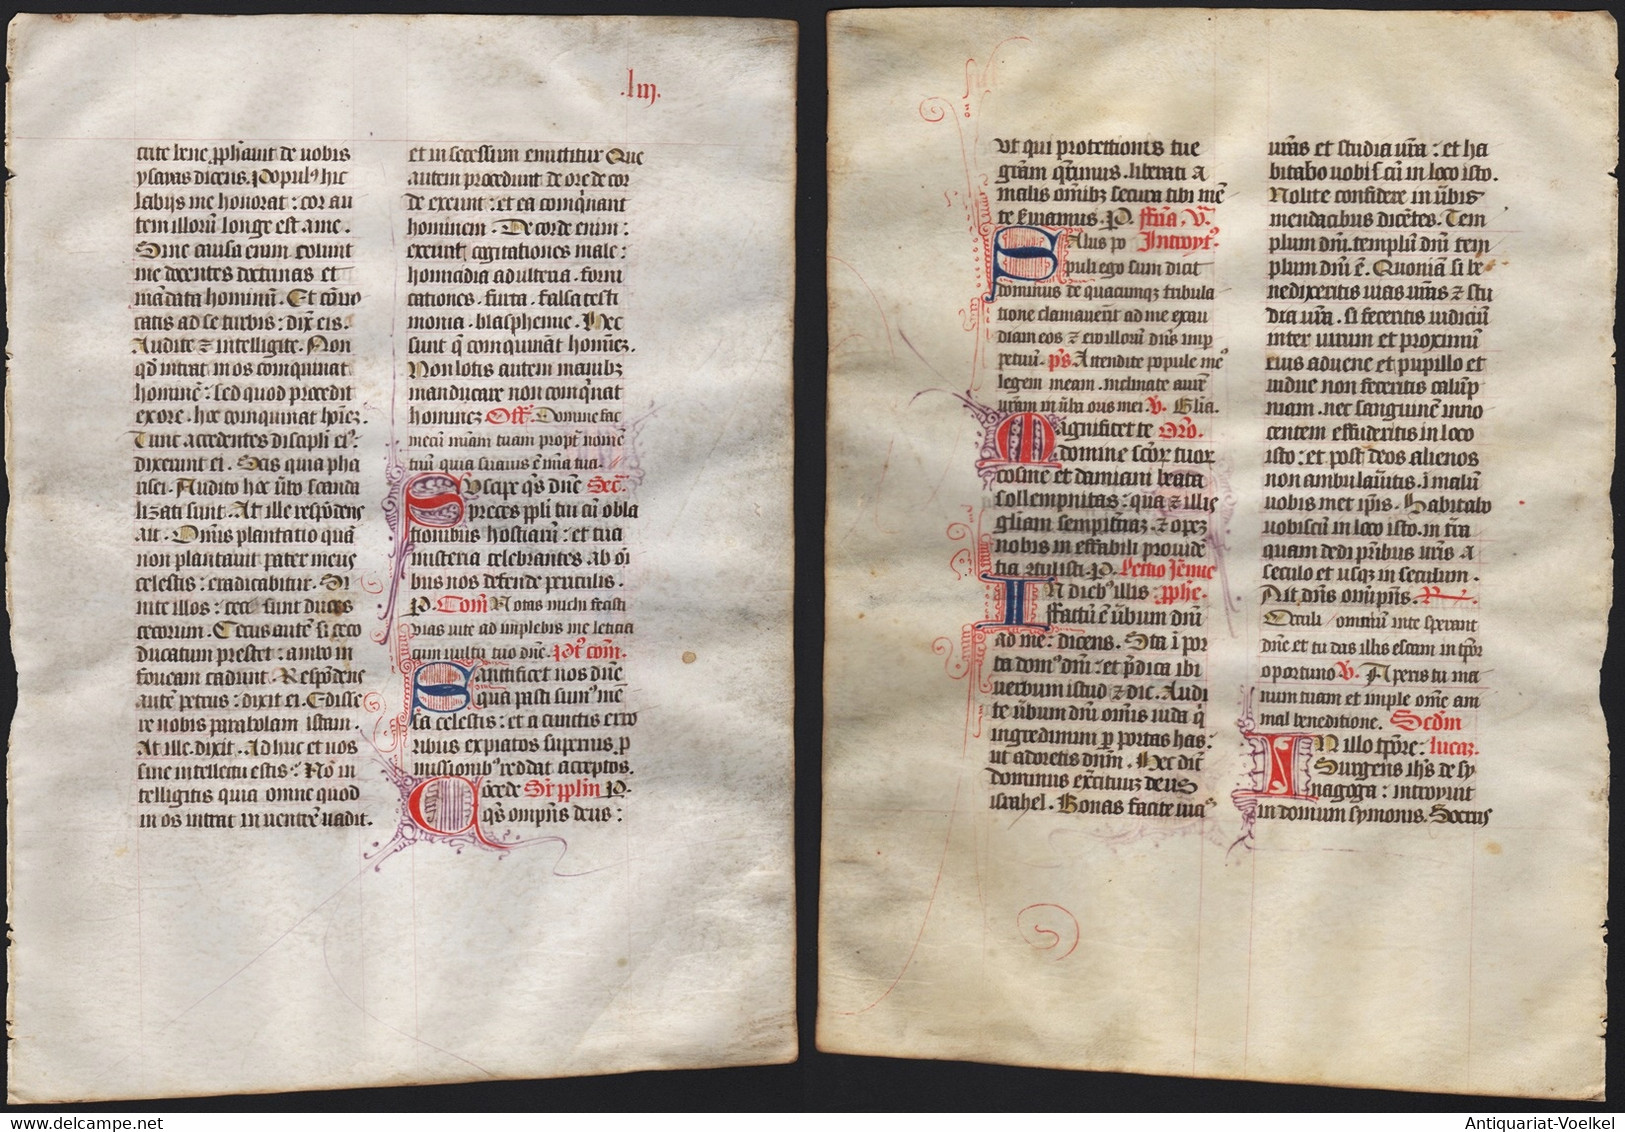 .liij.
crite bene pph̄auit de uobis
ysayas dicens. Popul9 hic
labijs me honorat : cor au
tem illorū longe est a me.
Sine causa enim colunt
me docentes doctrinas et
mādata hominū. Et cōuo
catis ad se turbis : dix̄ eis.
Audite ⁊ intelligite. Non
qd̄ intrat in os coinquinat
hominē : sed quod procedit
ex ore . hoc coinquinat hoīez.
Tunc accedentes discipli ei9 :
dixerunt ei . Scis quia pha
risei . Audito hoc ūbo scanda
lizati sunt. At ille respōdens
ait . Omīs plantatio quā
non plantauit pater meus
celestis : eradicabitur. Si
nite illos : ceci sunt duces
cecorum. Cecus autē si ceco
ducatum prestet : ambo in
foueam cadunt. Respōdens
autē petrus : dixit ei. Edisse
re nobis parabolam istam.
At ille. dixit. Ad huc et uos
sine intellectu estis : Nō in
telligitis quia omne quod
in os intrat in uentrē uadit .
et in secessum emittitur Que
autem procedunt de ore de cor
de exeunt : et ea coinq̄nant
hominem . De corde enim :
exeunt cogitationes male :
homicidia adulteria . forni
cationes . furta . falsa testi
monia . blasphemie . Hec
sunt q̄ coinquinant homīez.
Non lotis autem manibz
manducare non coinq̄nat
hominez Off̄. Domine fac
mecū mīam tuam propt̄ nomē
tuū quia suauis ē mīa tua.
Suscipe qs dn̄e Sec̄.
preces ppli tui cū obla
tionibus hostiarū : et tua
misteria celebrantes . ab oī
bus nos defende periculis.
P. Com̄ Notas michi fecisti
uias uite ad implebis me leticia
cum uultu tuo dn̄e. Pt9 com̄.
Sanctificet nos dn̄e
qua pasti sum9 mē
sa celestis : et a cunctis erro
ribus expiatos supernis . p
missionib9 reddat acceptos.
Concede Sr̄ pplin P.
qs omp̄ns deus :
Vt qui protectionis tue
grām q̄rimus . liberati a
malis om̄ibz secura tibi mē
te s̄uiamus. P. ffr̄ia. V.
Salus po Introyt9.
puli ego sum dicit
dominus de quacunqz tribula
tione clamauerit ad me exau
diam eos ⁊ ero illorū dn̄s in p
petuū. ps̄. Attendite popule me9
legem meam . inclinate aurē
urām in ūba oris mei. V. Glīa.
Magnificet te Orō.
domine scōr tuor
cosme et damiani beata
sollempnitas : qua ⁊ illis
glīam sempitnaz . ⁊ opez
nobis in effabili prouidē
tia cōtulisti. P. Lectio Jēmie
In dieb9 illis : pphe.
ffactū ē ūbum dn̄i
ad me : dicens. Sta ī por
ta dom9 dn̄i : et p̄dica ibi
uerbum istud ⁊ dic. Audi
te ūbum dn̄i om̄is iuda q̄
ingredimini p portas has :
ut adoretis dn̄m. Hec dic̄
dominus ex̄cituuz deus
israhel. Bonas facite uia9
urās et studia ur̄a : et ha
bitabo uobis cū in loco isto.
Nolite confidere in ūbis
mendacibus dicētes. Tem
plum dn̄i . templū dn̄i tem
plum dn̄i ē. Quoniā si be
nedixeritis uias ur̄as ⁊ stu
dia ur̄a . si feceritis iudiciū
inter uirum et proximū
eius aduene et pupillo et
uidue non feceritis calūp
niam . nec sanguinem inno
centem effuderitis in loco
isto : et post deos alienos
non ambulau̅itis . ī malū
uobis met ip̄is. Habitabo
uobiscū in loco isto . in tr̄a
quam dedi pr̄ibus ur̄is a
seculo et usqz in seculum .
Ait dn̄s om̄ip̄ns. R.
Oculi / omniū in te sperant
dn̄e et tu das illis escam in tp̄or
oportuno V. Aperis tu ma
num tuam et imple om̄e am
mal benedictione. Secdm
In illo tp̄ore : lucaz.
Surgens ih̄s de sy
nagoga : introyuit
in domum symonis. Socrus
Antiquariat-Voelkel